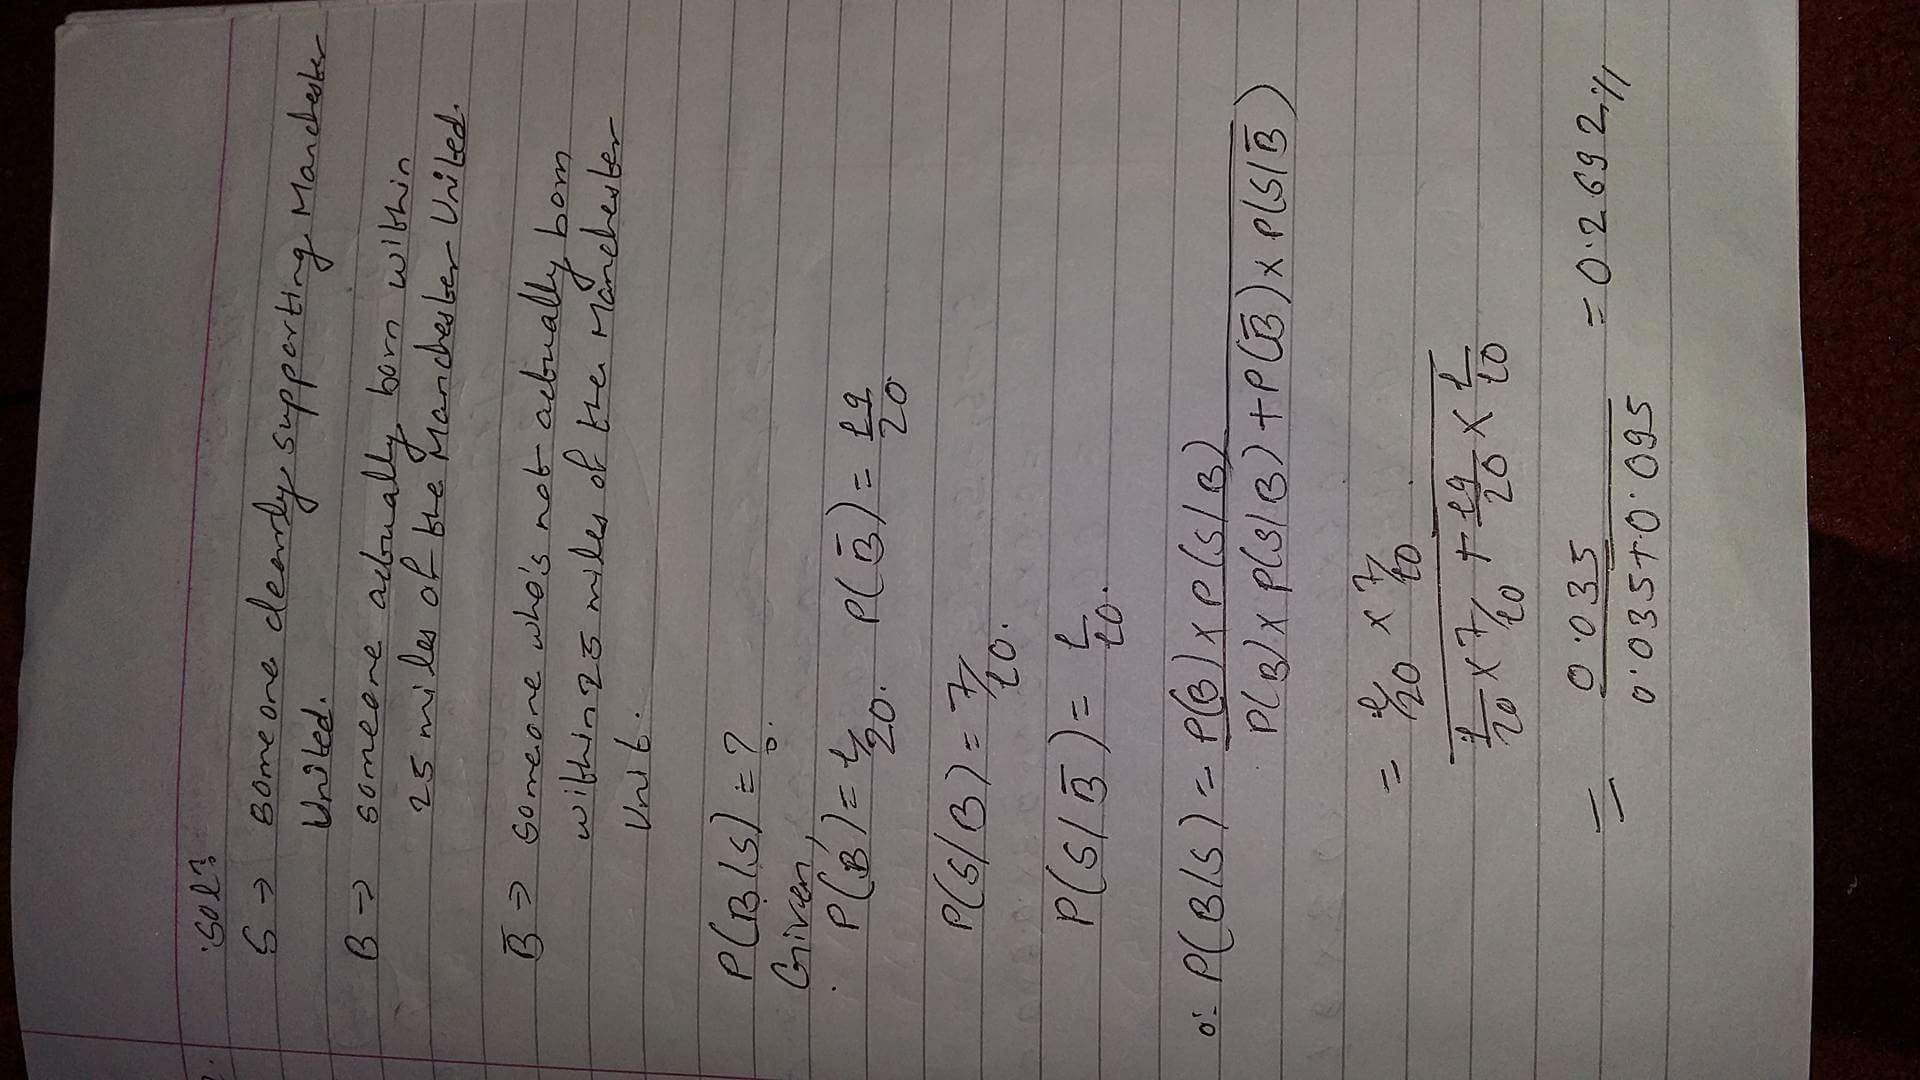 Soln
S → someone clearly supporting Manchester
United.
B → someone actually born within
25 miles of the Manchester United.
B̄ → someone who's not actually born
within 25 miles of the Manchester
Unit.
P(B/S) = ?
Given,
P(B) = 1/20. P(B̄) = 19/20
P(S/B) = 7/10.
P(S/B̄) = 1/10.
∴ P(B/S) = P(B) x P(S/B)
P(B) x P(S/B) + P(B̄) x P(S/B̄)
= 1/20 x 7/10
1/20 x 7/10 + 19/20 x 1/10
= 0.035 = 0.2692
0.035 + 0.095